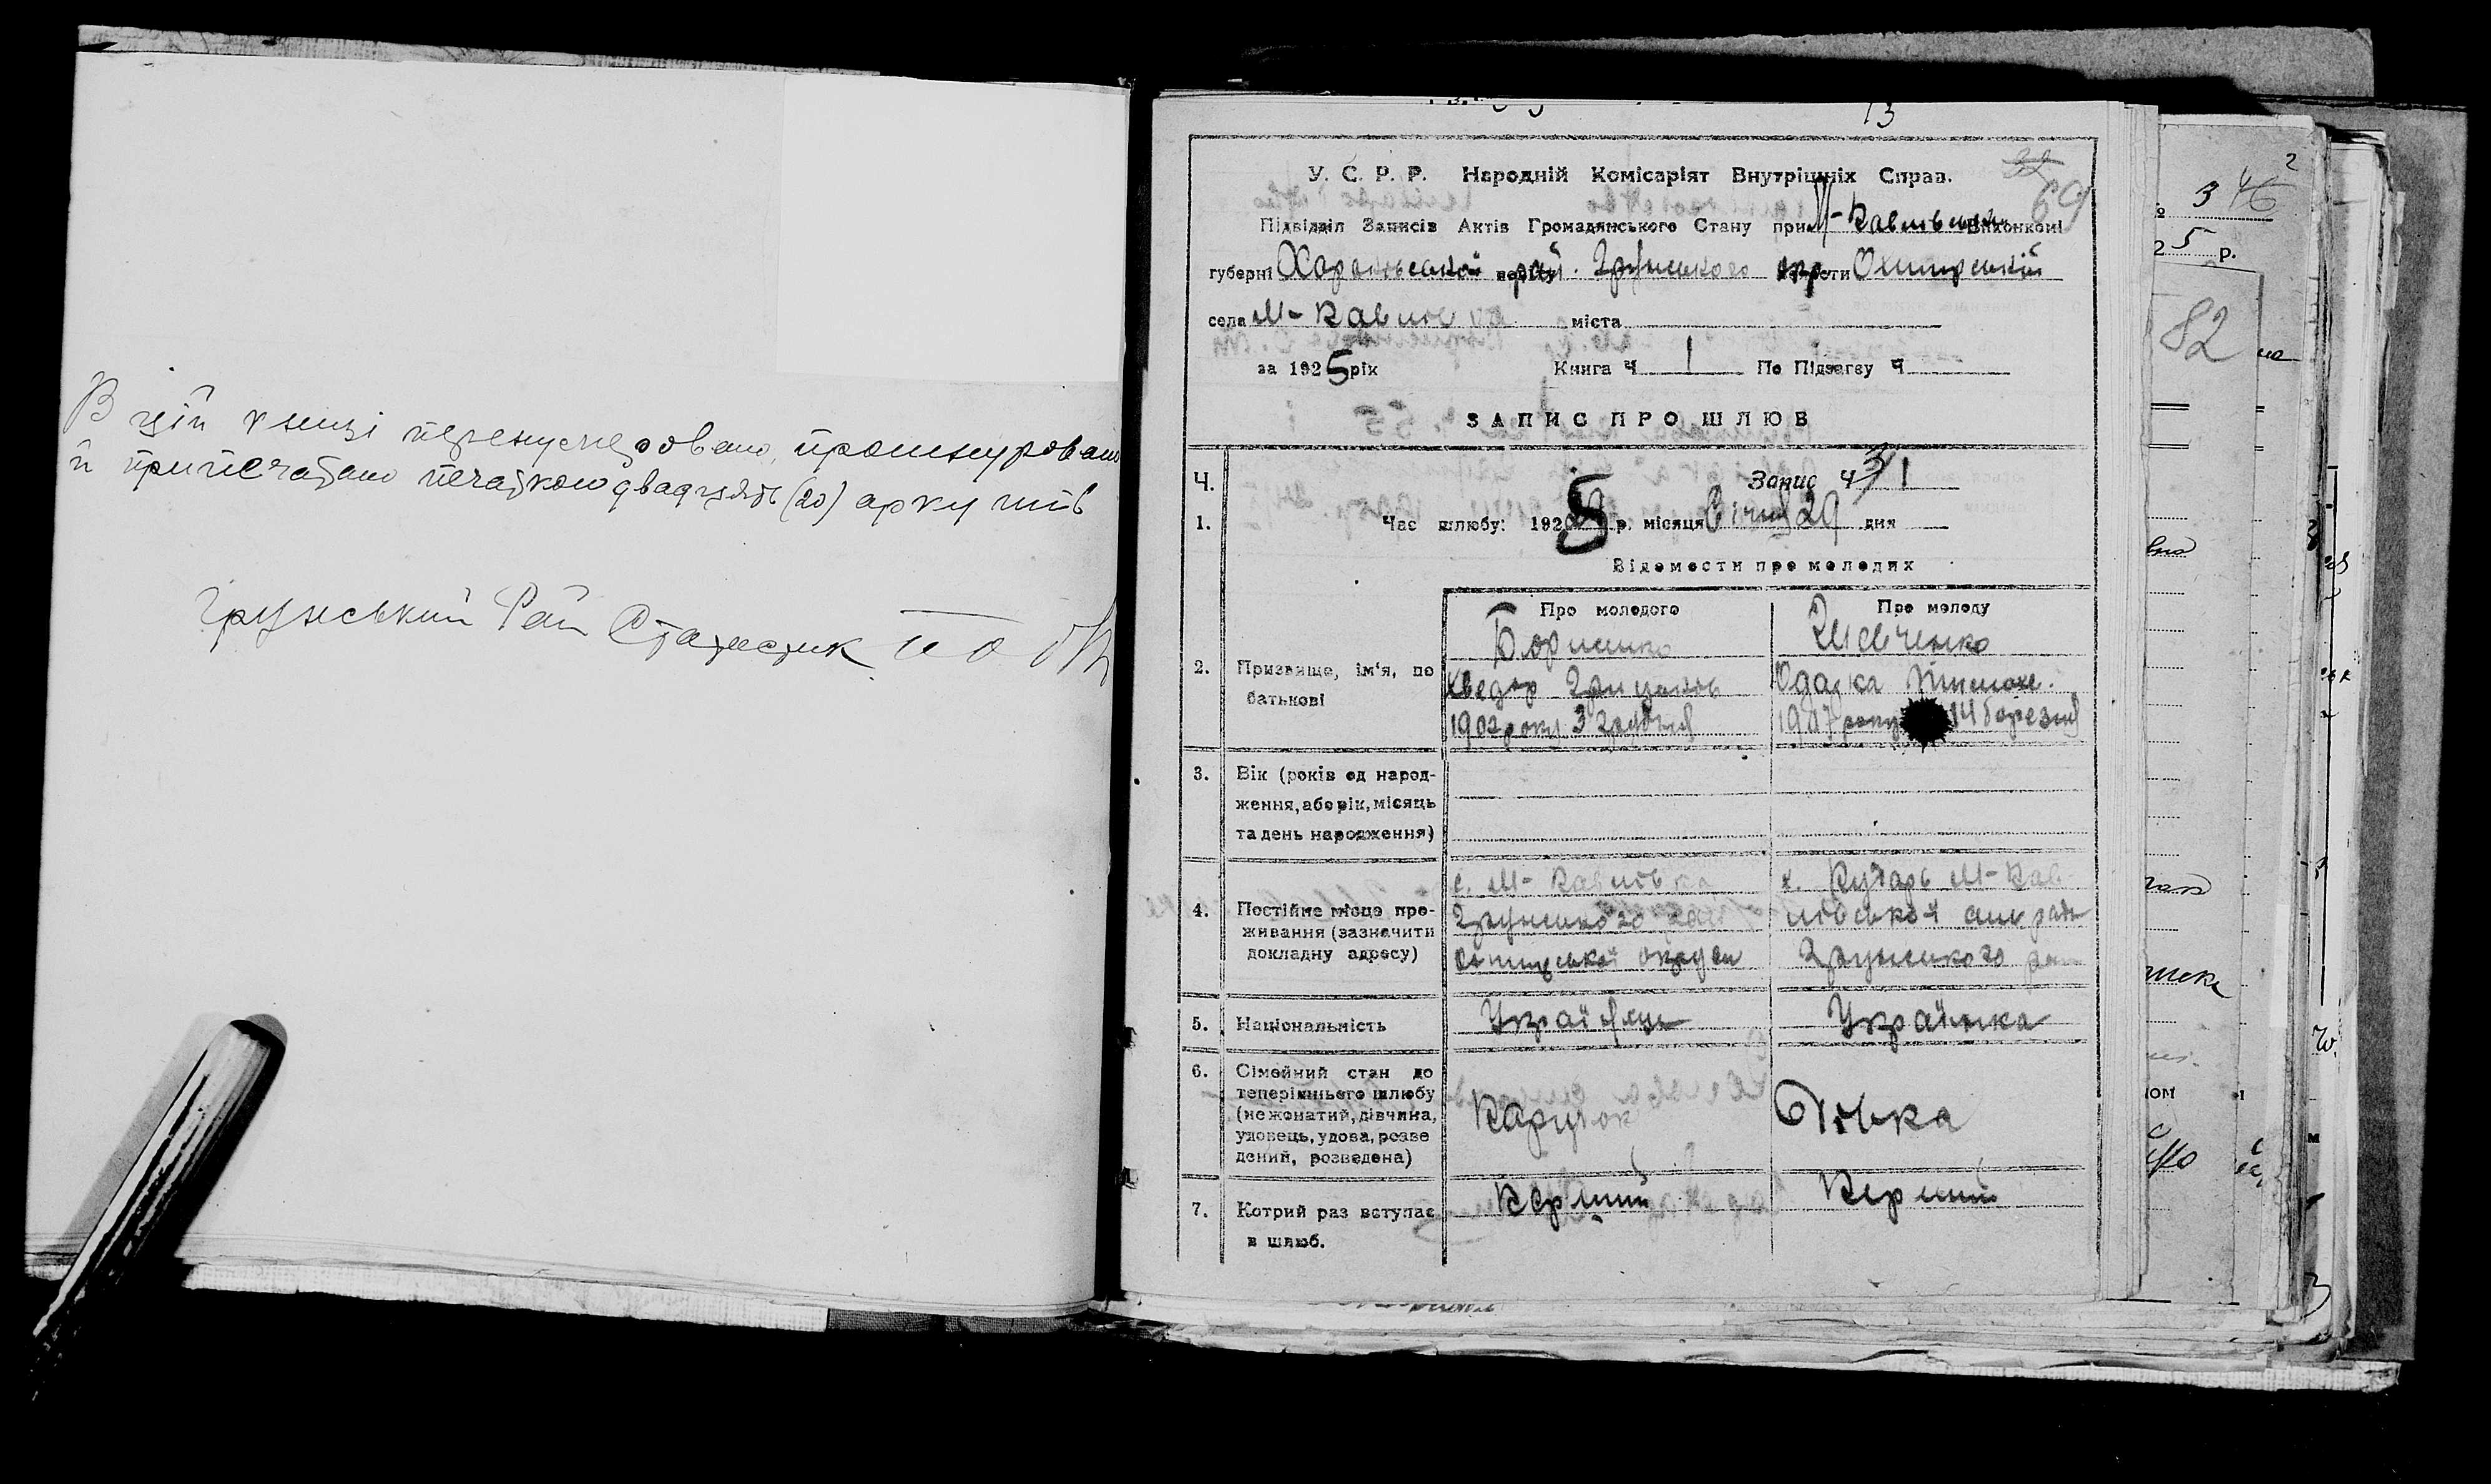 В цій книзі перенумеровано, прошнуровано
й припечатано печаткою двадцять (20) аркушів
Грунський Рай Статистик
13
У. С. Р. Р. Народній Комісаріят Внутрішніх Справ.
69
Підвідділ Записів Актів Громадянського Стану при М-Павлівськ Виконкомі
губерні Харьківської рай. Грунського окр Охтирській
села М-Павлівка міста
за 1925 рік Книга Ч 1 По Підзагсу Ч
ЗАПИС ПРО ШЛЮБ
Ч. Запис Ч 1
1. Час шлюбу: 1925 р. місяця Січня 29 дня
Відомости про молодих
Про молодого Про молоду
2. Призвище, ім'я, по батькові
Шевченко
Хведор Грицьков Одарка Тимохв.
1902 року 3 1907 року 14 березня
3. Вік (років од народ-
ження, або рік, місяць
та день народження)
4. Постійне місце про-
живання (зазначити
докладну адресу)
с. М-Павлівка
Грунського рай
Охтирської округи
х. М-Пав-
лівської сільради
Грунського рай
5. Національність Українець Українка
6. Сімейний стан до
теперішнього шлюбу
(нежонатий, дівчина,
удовець, удова, розве
дений, розведена)
Парубок Дівка
7. Котрий раз вступає Перший Перший
в шлюб.
3 46
2
25 р.
82